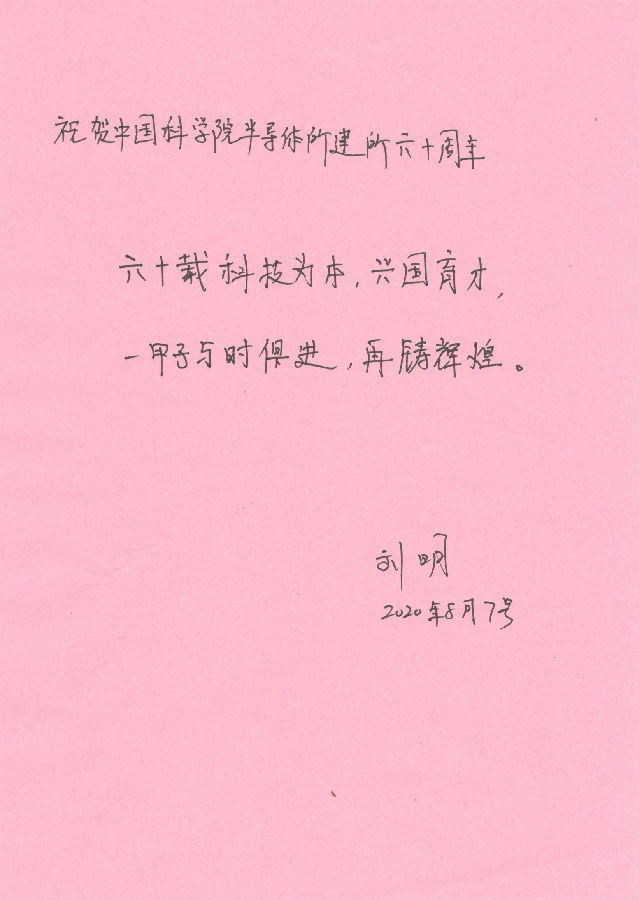 祝贺中国科学院半导体所建所六十周年
六十载科技为本,兴国育才,
一甲子与时俱进,再铸辉煌。
刘明
2020年8月7号